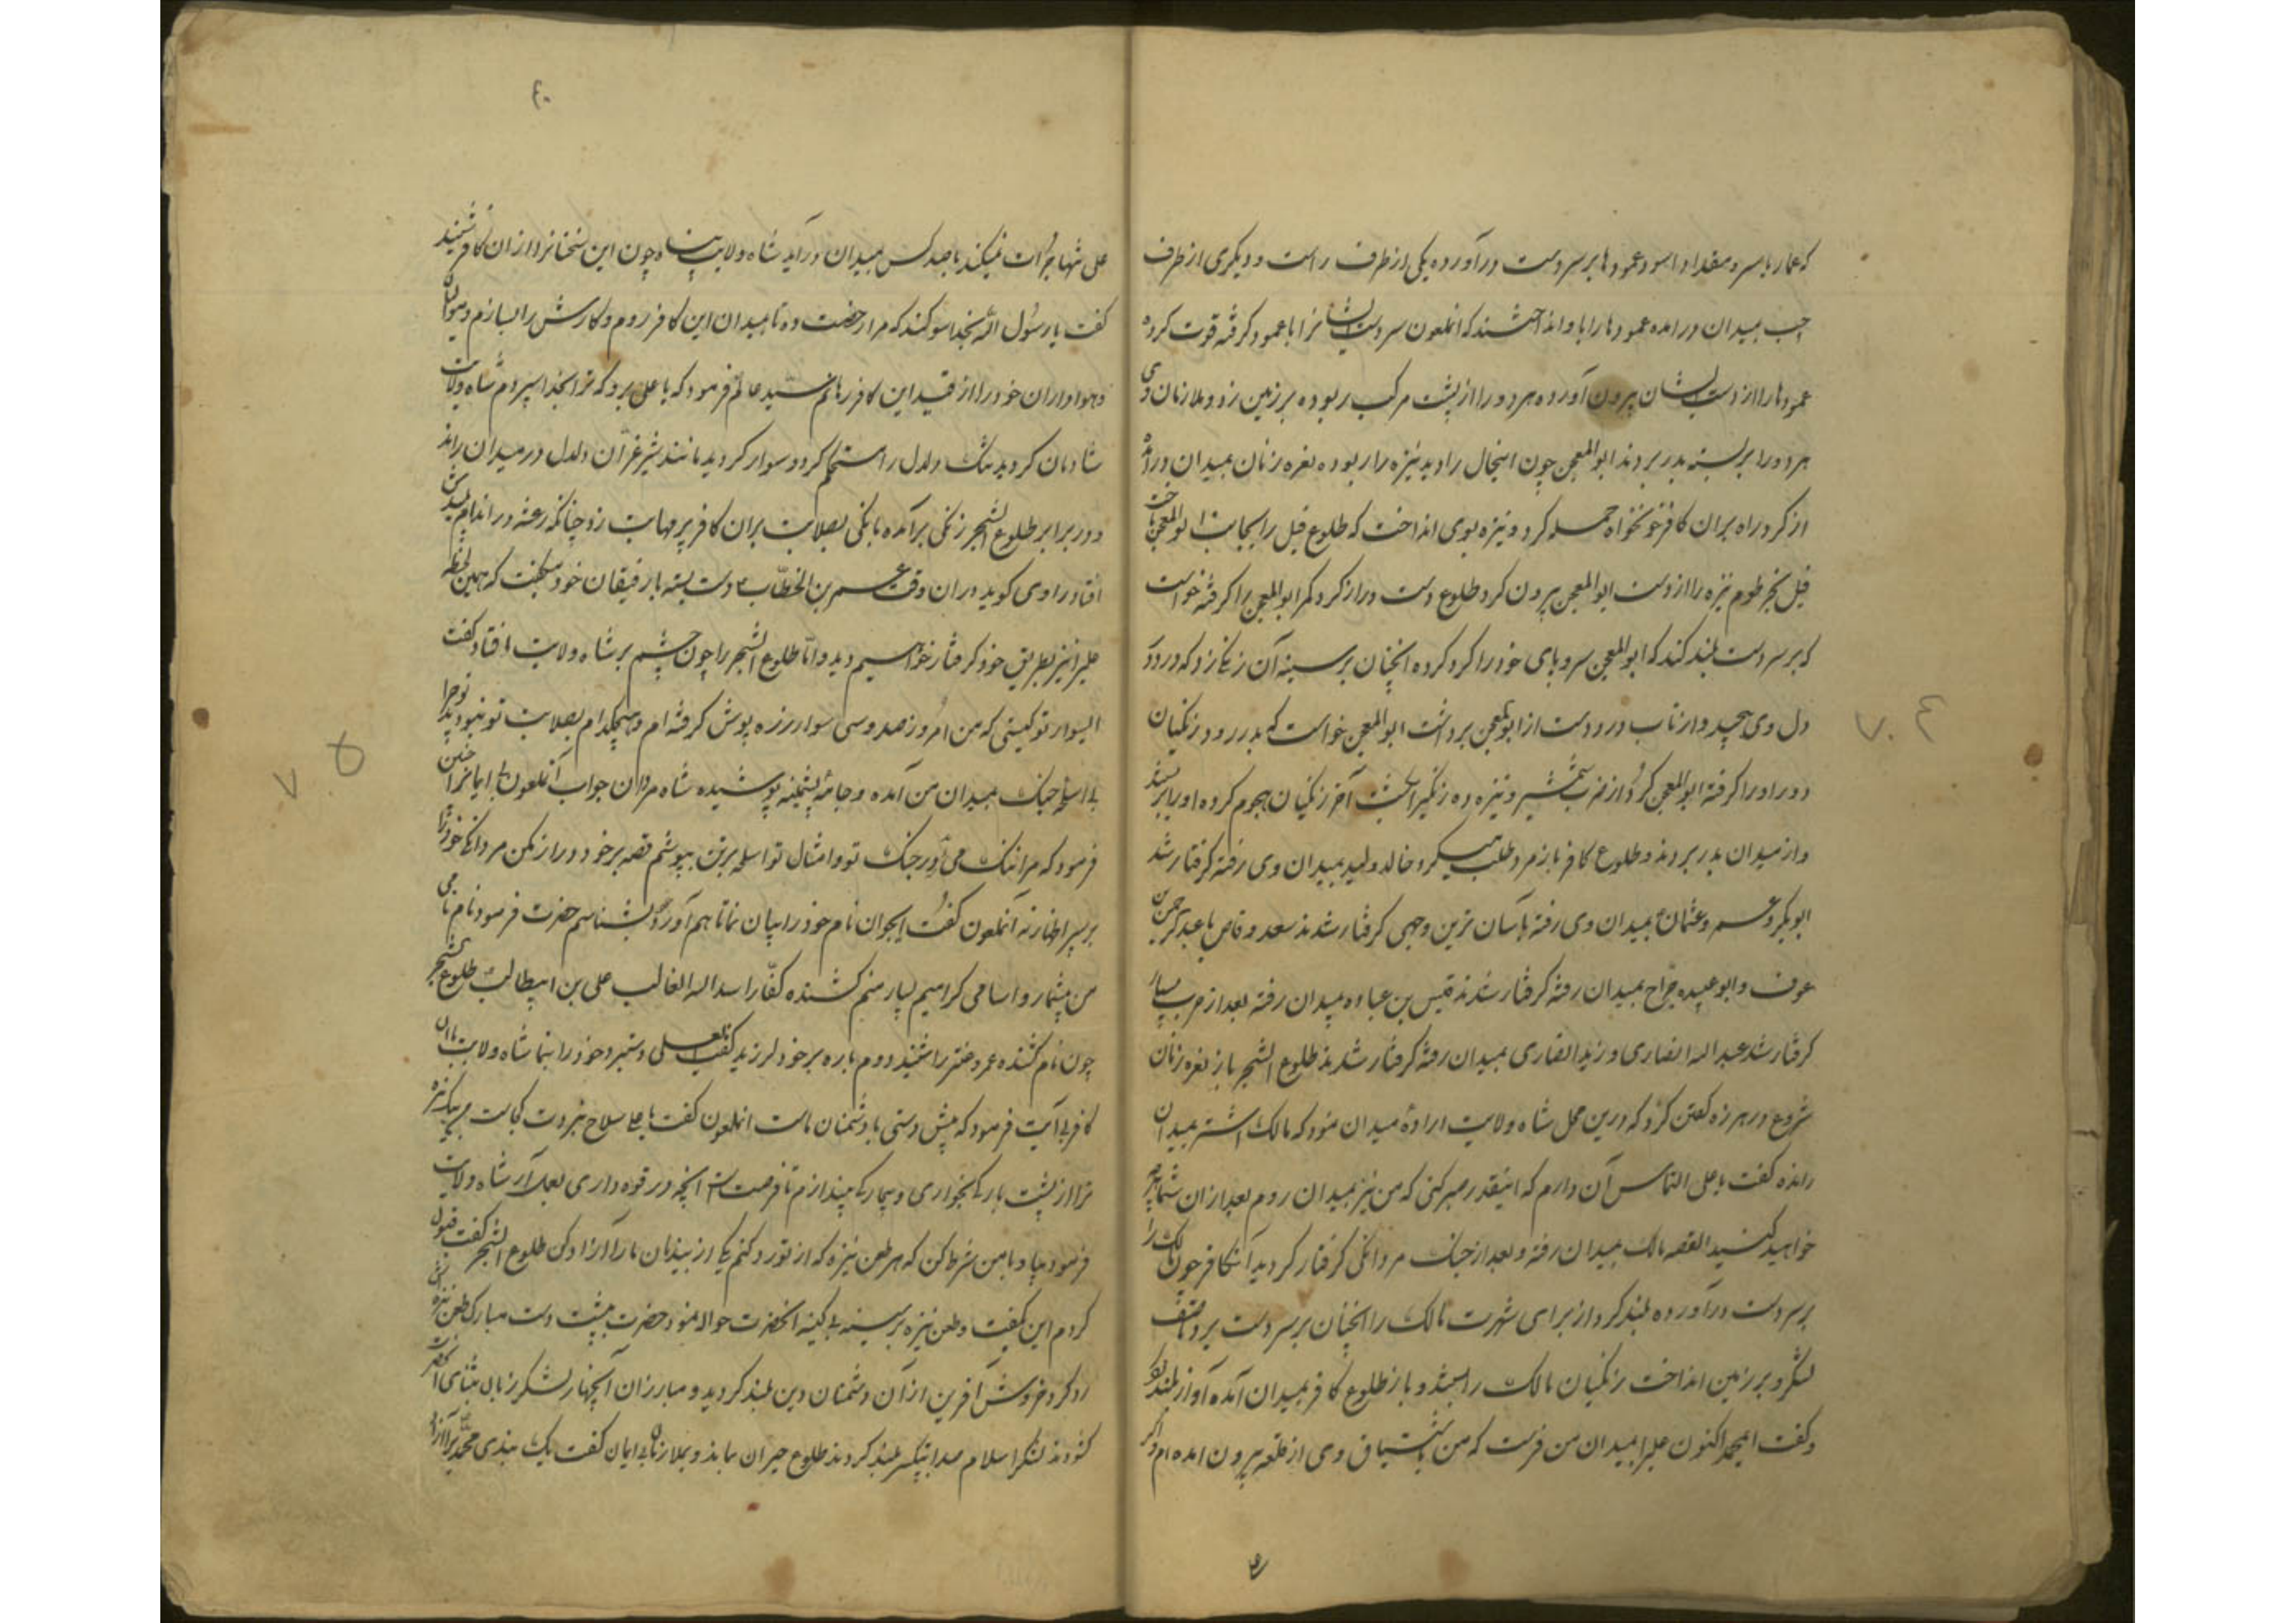 که عمار یاسر و مقداد اسود عمودها بر سر دست درآورده یکی از طرف راست و دیگری از طرف
چپ بمیدان درامده عمودها را با و انداختند که انملعون سر دست ایشانرا با عمود کرفته قوت کرده
عمودها را از دست ایشان بیرون آورده هر دو را از پشت مرکب ربوده بر زمین زد و ملازمان وی
هر دو را بر بسته بدر بردند ابوالمعجن چون اینحال را دید نیزه را ربوده نعره زنان بمیدان درآمده
از کرد راه بران کافر خونخواه حمله کرد و نیزه بوی انداخت که طلوع فیل را بجانب ابوالمعجن تاخت
فیل بخرطوم نیزه را از دست ابوالمعجن بیرون کرد طلوع دست دراز کرد و کمر ابوالمعجن را کرفته خواست
که بر سر دست بلند کند که ابوالمعجن سر و پای خود را کرد کرده انچنان بر سینه آن زنکی زد که درد در
دل وی پیچید و از تاب درد دست از ابوالمعجن برداشت ابوالمعجن خواست که بدر رود زنکیان
دور او را کرفته ابوالمعجن کرد از ضرب شمشیر و نیزه ده زنکیرا بکشت آخر زنکیان هجوم کرده او را بر بستند
و از میدان بدر بردند و طلوع کافر باز مرد طلب میکرد خالد ولید بمیدان وی رفته کرفتار شد
ابوبکر و عمر و عثمان بمیدان وی رفته بآسان ترین وجهی کرفتار شدند سعد وقاص با عبدالرحمن بن
عوف و ابوعبیده جراح بمیدان رفته کرفتار شدند قیس بن عباده بمیدان رفته بعد از حرب بسیار
کرفتار شد عبداله انصاری و زید انصاری بمیدان رفته کرفتار شدند طلوع الشجر باز نعره زنان
شروع در هرزه کفتن کرد که درین محل شاه ولایت ارادهٔ میدان نمود که مالک اشتر بمیدان
رانده کفت یا علی التماس آن دارم که اینقدر صبر کنی که من نیز بمیدان روم بعد ازان شما هرچه
خواهید کنید القصه مالک بمیدان رفته و بعد از جنک مردانکی کرفتار کردید آنکافر چون مالک را
بر سر دست درآورده بلند کرد از برای شهرت مالک را انچنان بر سر دست برد تا صف
لشکر و بر زمین انداخت زنکیان مالک را بستند و باز طلوع کافر بمیدان آمده آواز بلند کرد
و کفت ایمحمد اکنون علیرا بمیدان من فرست که من باشتیاق وی از قلعه بیرون امده ام و اکر
۶۰
علی تنها جرات نمیکند با صد کس بمیدان درآید شاه ولایت پناه چون این سخنانرا ازان کافر شنید
کفت یا رسول الله بخدا سوکند که مرا رخصت ده تا بمیدان این کافر روم و کارش را بسازم و موالیان
و هواداران خود را از قید این کافر رهانم سید عالم فرمود که یا علی برو که ترا بخدا سپردم شاه ولایت
شادمان کردید تنک دلدل را مستحکم کرد و سوار کردید مانند شیر غران دلدل در میدان راند
و در برابر طلوع الشجر زنکی برآمده بانکی بصلابت بران کافر پر مهابت زد چنانکه رعشه در اندام پلیدش
افتاد راوی کوید دران وقت عمر بن الخطاب دست بسته با رفیقان خود میکفت که همین لحظه
علیرا نیز بطریق خود کرفتار خواهیم دید و اما طلوع الشجر را چون چشم بر شاه ولایت افتاد کفت
ایسوار تو کیستی که من امروز صد و سی سوار زره پوش کرفته ام و هیچکدام بصلابت تو نبودند تو چرا
بی اسباب جنک بمیدان من آمده و جامهٔ پشمینه پوشیده شاه مردان جواب آنملعون بی ایمانرا چنین
فرمود که مرا ننک می آید در جنک تو و امثال تو اسلحه بر تن بپوشم قصه بر خود دراز مکن مردانکی خود را
بر سپر اظهار نه آنملعون کفت ایجوان نام خود را بیان نما تا هم آوردکه بشناسم حضرت فرمود نام نامی
من بیشمار و اسامی کرامیم بسیار منم کشنده کفار اسد اله الغالب علی بن ابیطالب طلوع الشجر
چون نام کشنده عمرو عنتر را شنید دوم باره بر خود لرزید کفت یا علی دستبرد خود را بنما شاه ولایت با آن
کافر بی آیت فرمود که پیش دستی با دشمنان ماست انملعون کفت یا علی سلاح نبردت کجاست مر بیک نیزه
ترا از پشت بارکی بخواری و بیچارکی بیندازم تا فرصت است انچه در قوه داری بعمل آر شاه ولایت
فرمود بیا و با من شرط کن که هر طعن نیزه که از تو رد کنم یکی از بندیان ما را آزاد کن طلوع الشجر کفت قبول
کردم این بکفت و طعن نیزه بر سینه بی کینه انحضرت حواله نمود حضرت بپشت دست مبارک طعن نیزه
رد کرد خروش آفرین از آن دشمنان دین بلند کردید و مبارزان آنچهار لشکر زبان بثنای آنحضرت
کشودند لشکر اسلام صدا بتکبیر بلند کردند طلوع حیران بماند و بملازمان بی ایمان کفت یک بندی محمد را آزاد